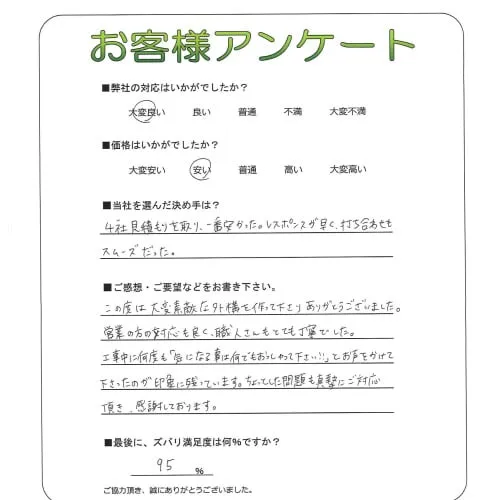 お客様アンケート
■弊社の対応はいかがでしたか?
大変良い 良い 普通 不満 大変不満
■価格はいかがでしたか?
大変安い 安い 普通 高い 大変高い
■当社を選んだ決め手は?
4社見積もりを取り、一番安かった。レスポンスが早く、打ち合わせも
スムーズだった。
■ご感想・ご要望などをお書き下さい。
この度は大変素敵な外構を作って下さりありがとうございました。
営業の方の対応も良く、職人さんもとても丁寧でした。
工事中に何度も「気になる事は何でもおっしゃって下さい!!」とお声をかけて
下さったのが印象に残っています。ちょっとした問題も真摯にご対応
頂き、感謝しております。
■最後に、ズバリ満足度は何%ですか?
95 %
ご協力頂き、誠にありがとうございました。